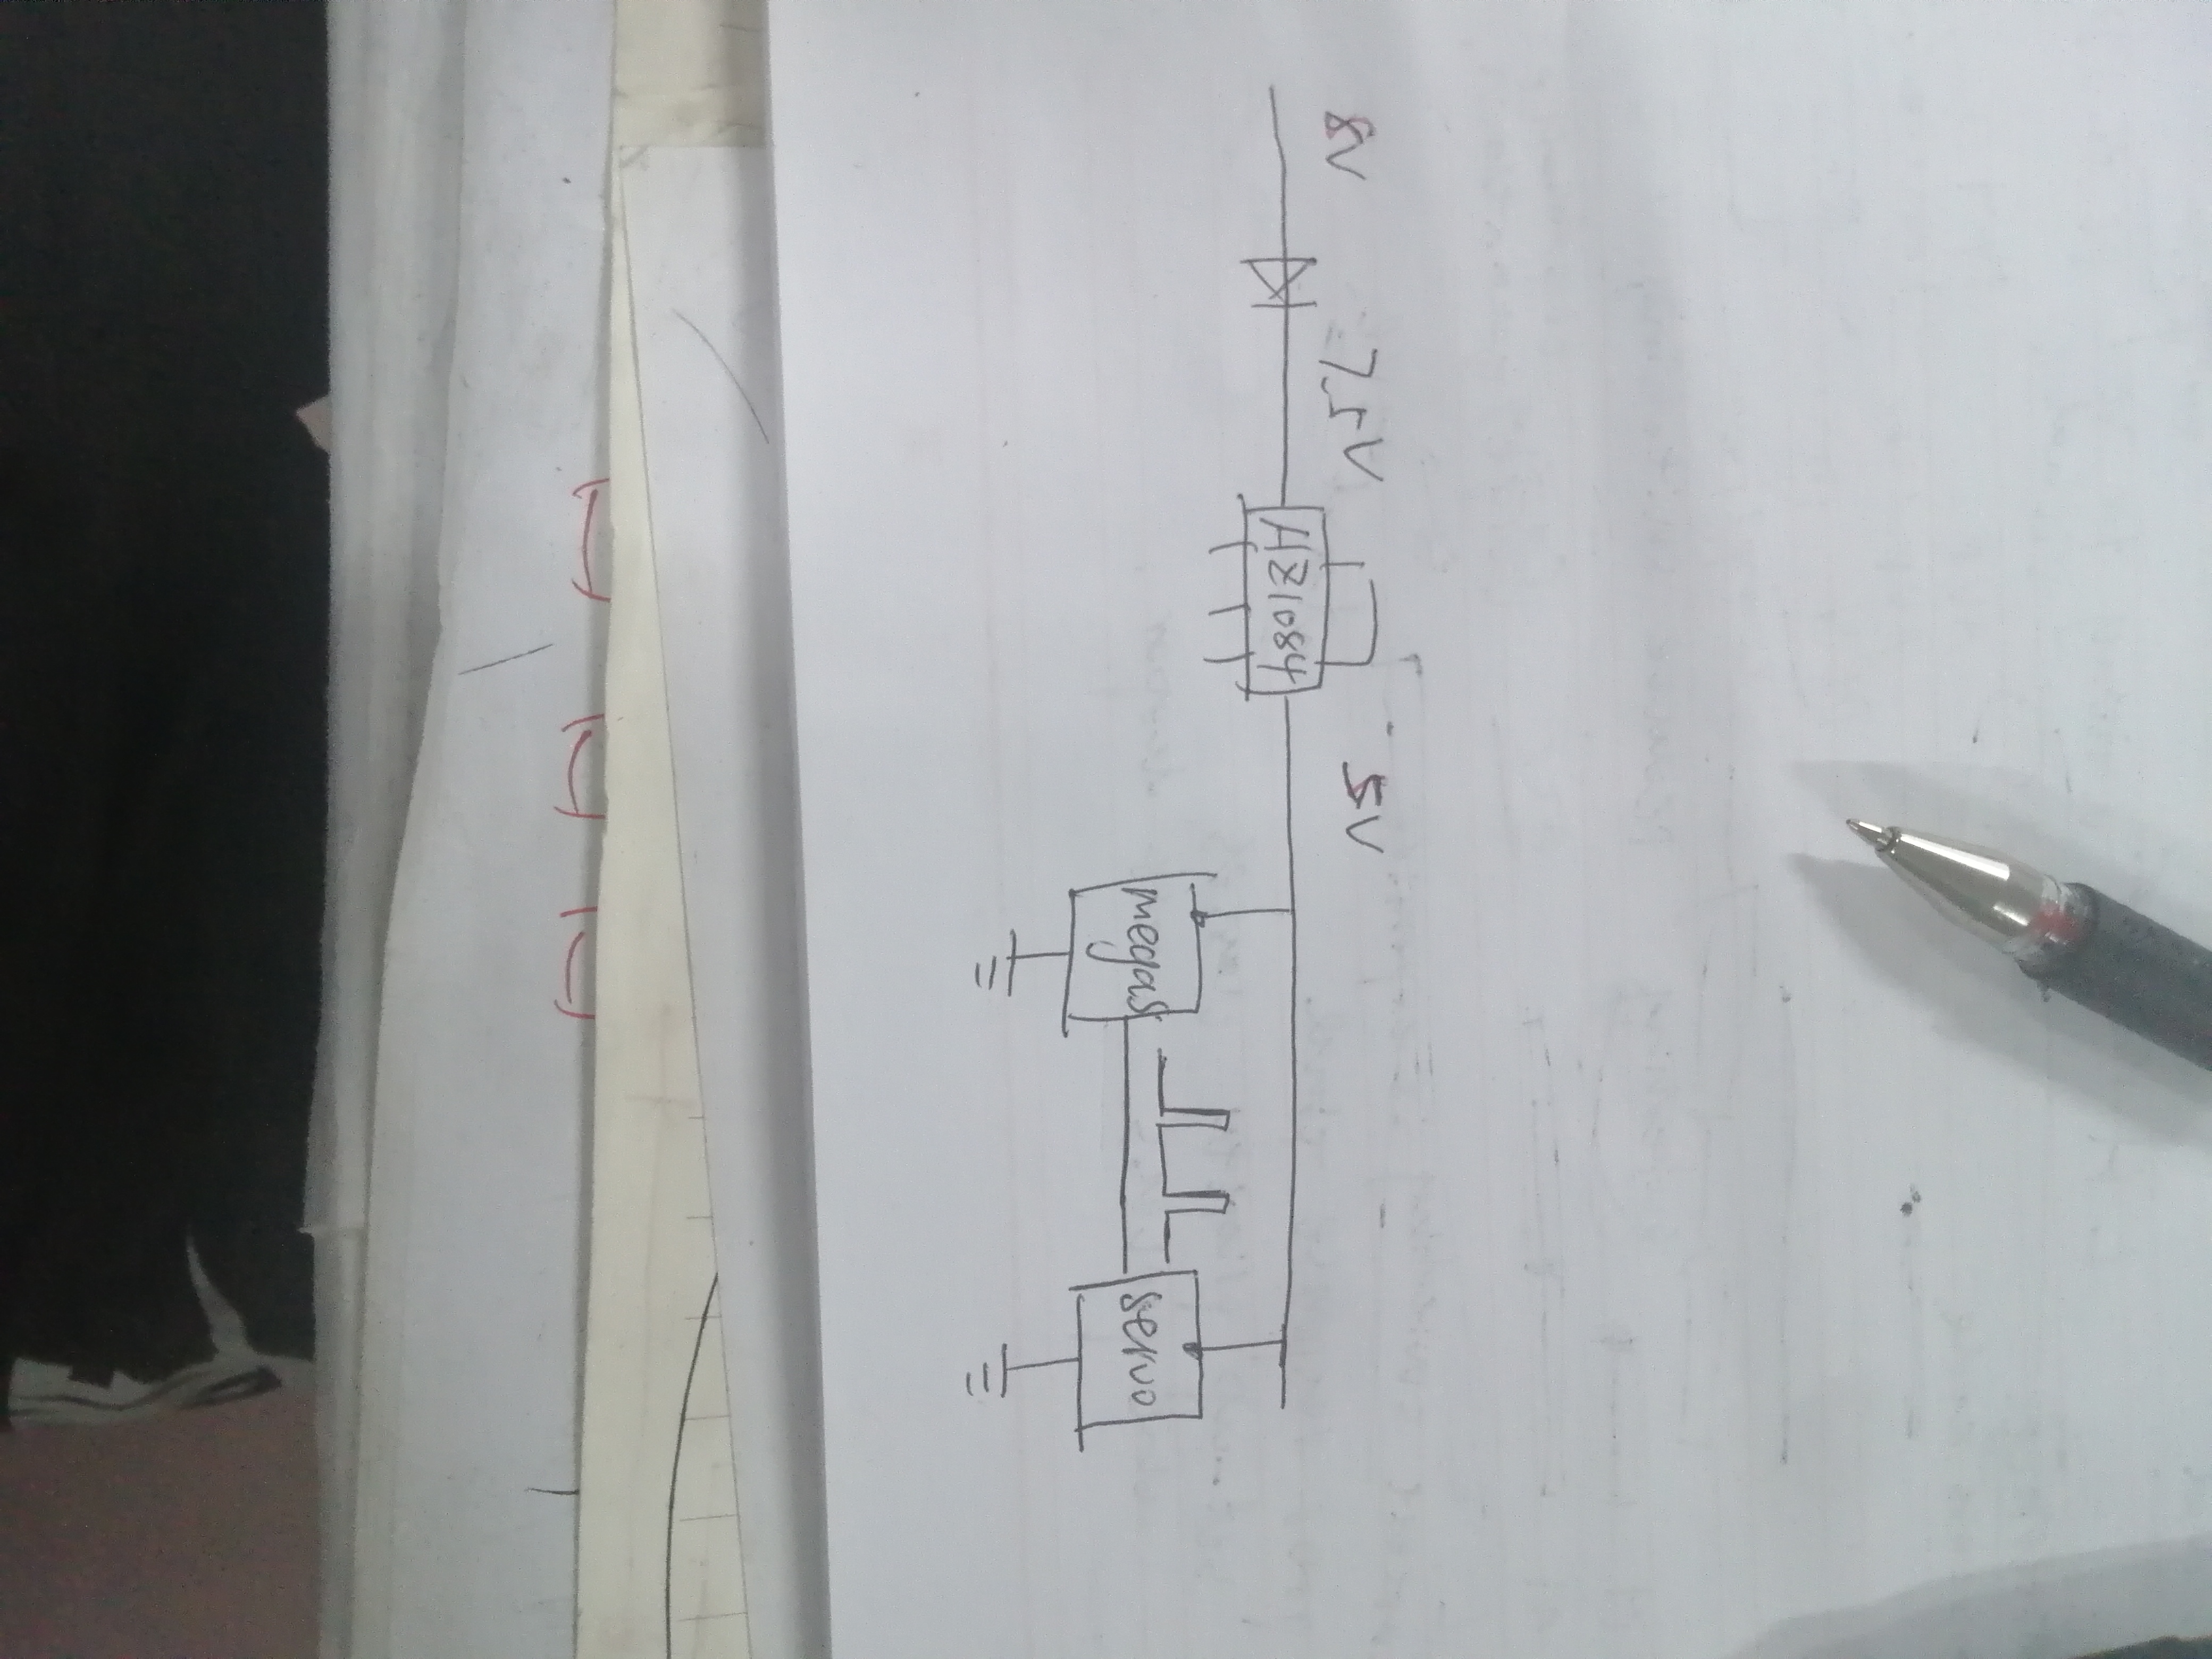 8V
7.5V
AZ1084
5V
mega8
servo